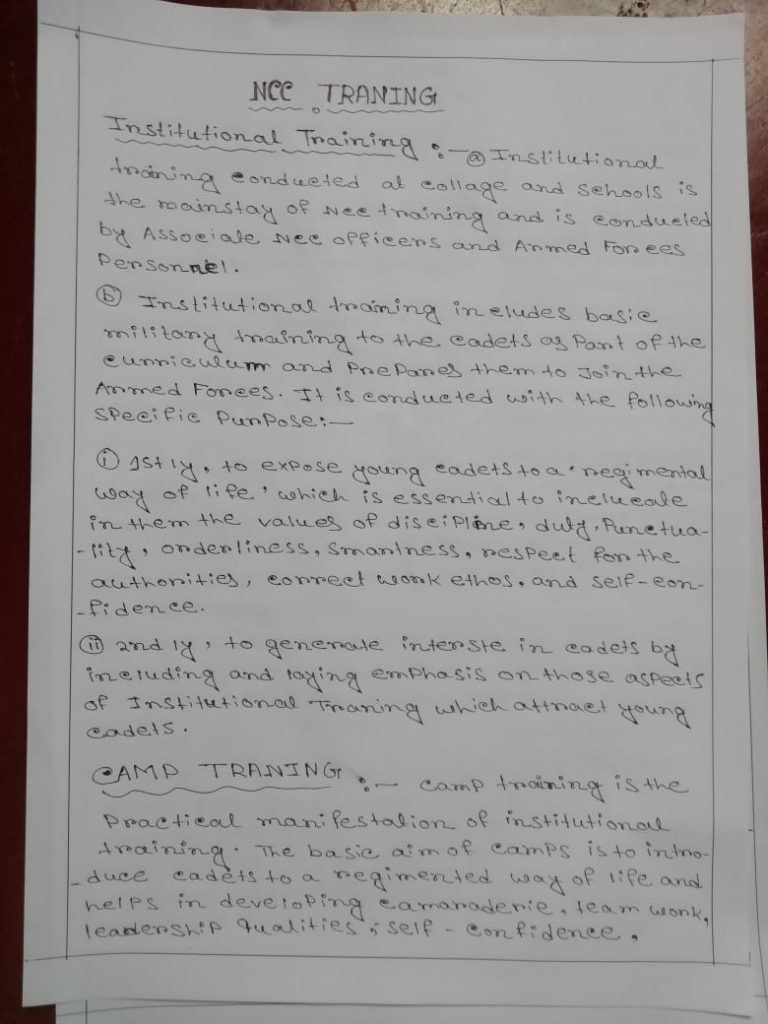 NCC TRANING
Institutional Training :- ⓐ Institutional
training conducted at collage and schools is
the mainstay of NCC training and is conducted
by Associate NCC officers and Armed Forces
Personnel.
ⓑ Institutional training includes basic
military training to the cadets as Part of the
curriculum and PrePares them to Join the
Armed Forces. It is conducted with the following
SPecific PurPose:—
ⓘ 1st ly, to expose young cadets to a 'regimental
way of life' which is essential to inclucate
in them the values of disciPline, duty, Punctua-
-lity, orderliness, smartness, respect for the
authorities, correct work ethos, and self-con-
-fidence.
ⓘⓘ 2nd ly, to generate interste in cadets by
including and laying emphasis on those aspects
of Institutional Traning which attract young
cadets.
CAMP TRANING :— camp training is the
Practical manifestation of institutional
training. The basic aim of camps is to intro-
-duce cadets to a regimented way of life and
helps in developing camaraderie, team work,
leadership qualities, self-confidence,